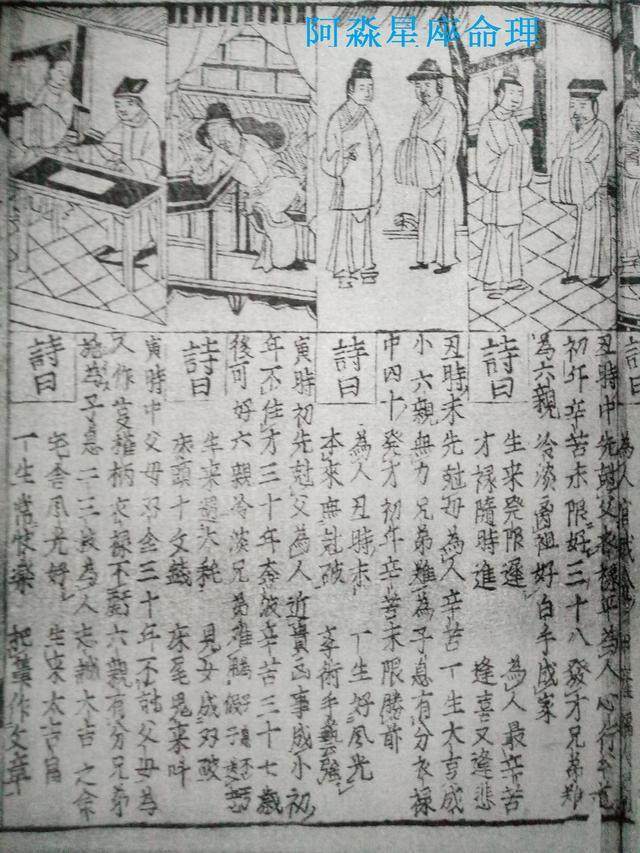 阿淼星座命理
丑時中先尅父衣祿平為人心行
初年辛苦末限好三十八發才兄弟难
為六親冷淡离祖好白手成家
詩曰
生來發限遲 為人最辛苦
才祿隨時進 逢喜又逢悲
丑時末先尅母為人辛苦丁生大吉成
小六親無力兄弟難為子息有分衣祿
中四十發才初年辛苦末限勝前
詩曰
為人丑時末 丁生好風光
本來無尅破 術手藝強
寅時初先尅父為人近貴凶事成小初
年不住才三十年奔波辛苦三十七歲
後可好六親冷淡兄弟难假子
詩曰
生來過大秏 見女成双破
床頭十文錢 床尾鬼來叶
寅時中父母双全三十年不尅父母為
人作權柄衣祿不虧六親有分兄弟
施為子息二三枝為人忠誠大吉之命
詩曰
宅舍風光好 生來太吉昌
丁生常快樂 把筆作文章